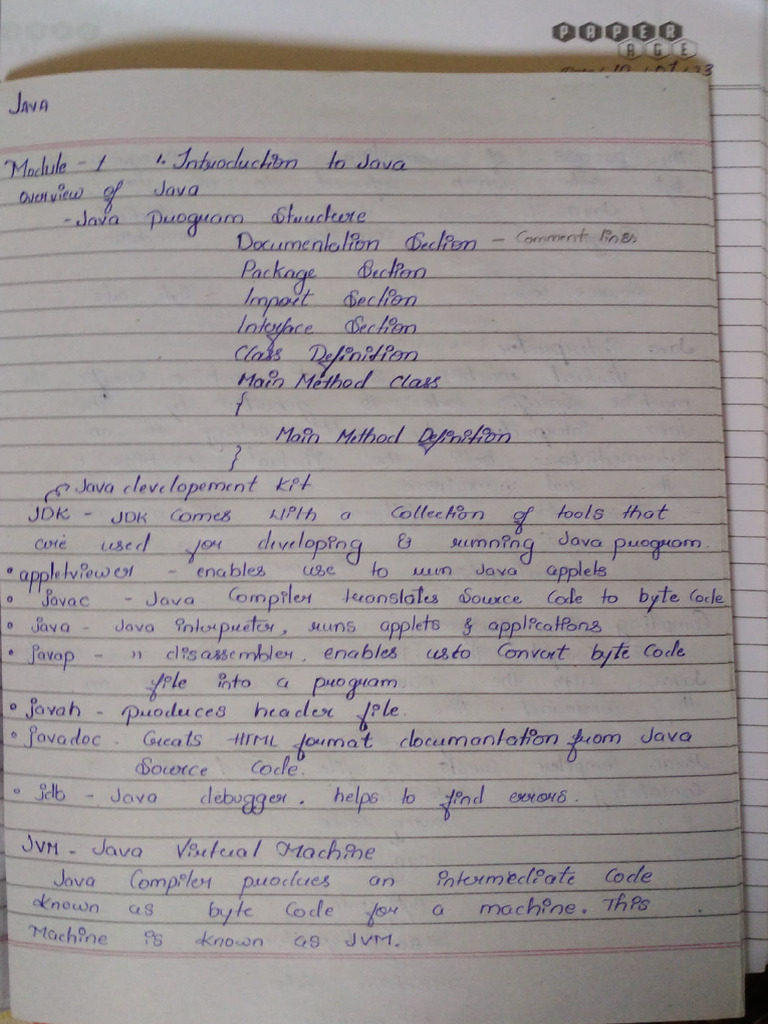 PAPER
AGE
JAVA
Module - 1 1. Introduction to Java
overview of Java
- Java program Structure
Documentation Section - Comment lines
Package Section
Import Section
Interface Section
Class Definition
Main Method Class
{
Main Method Definition
}
Java developement kit
JDK - JDK comes with a collection of tools that
are used for developing & running Java program.
• appletviewer - enables use to run Java applets
• javac - Java Compiler translates Source Code to byte Code
• Java - Java interpreter, runs applets & applications
• javap - " disassembler, enables usto Convert byte Code
file into a program
• javah - produces header file.
• javadoc - Creats HTML format documantation from Java
Source Code.
• jdb - Java debugger. helps to find errors.
JVM - Java Virtual Machine
Java Compiler produes an intermediate Code
known as byte Code for a machine. This
Machine is known as JVM.